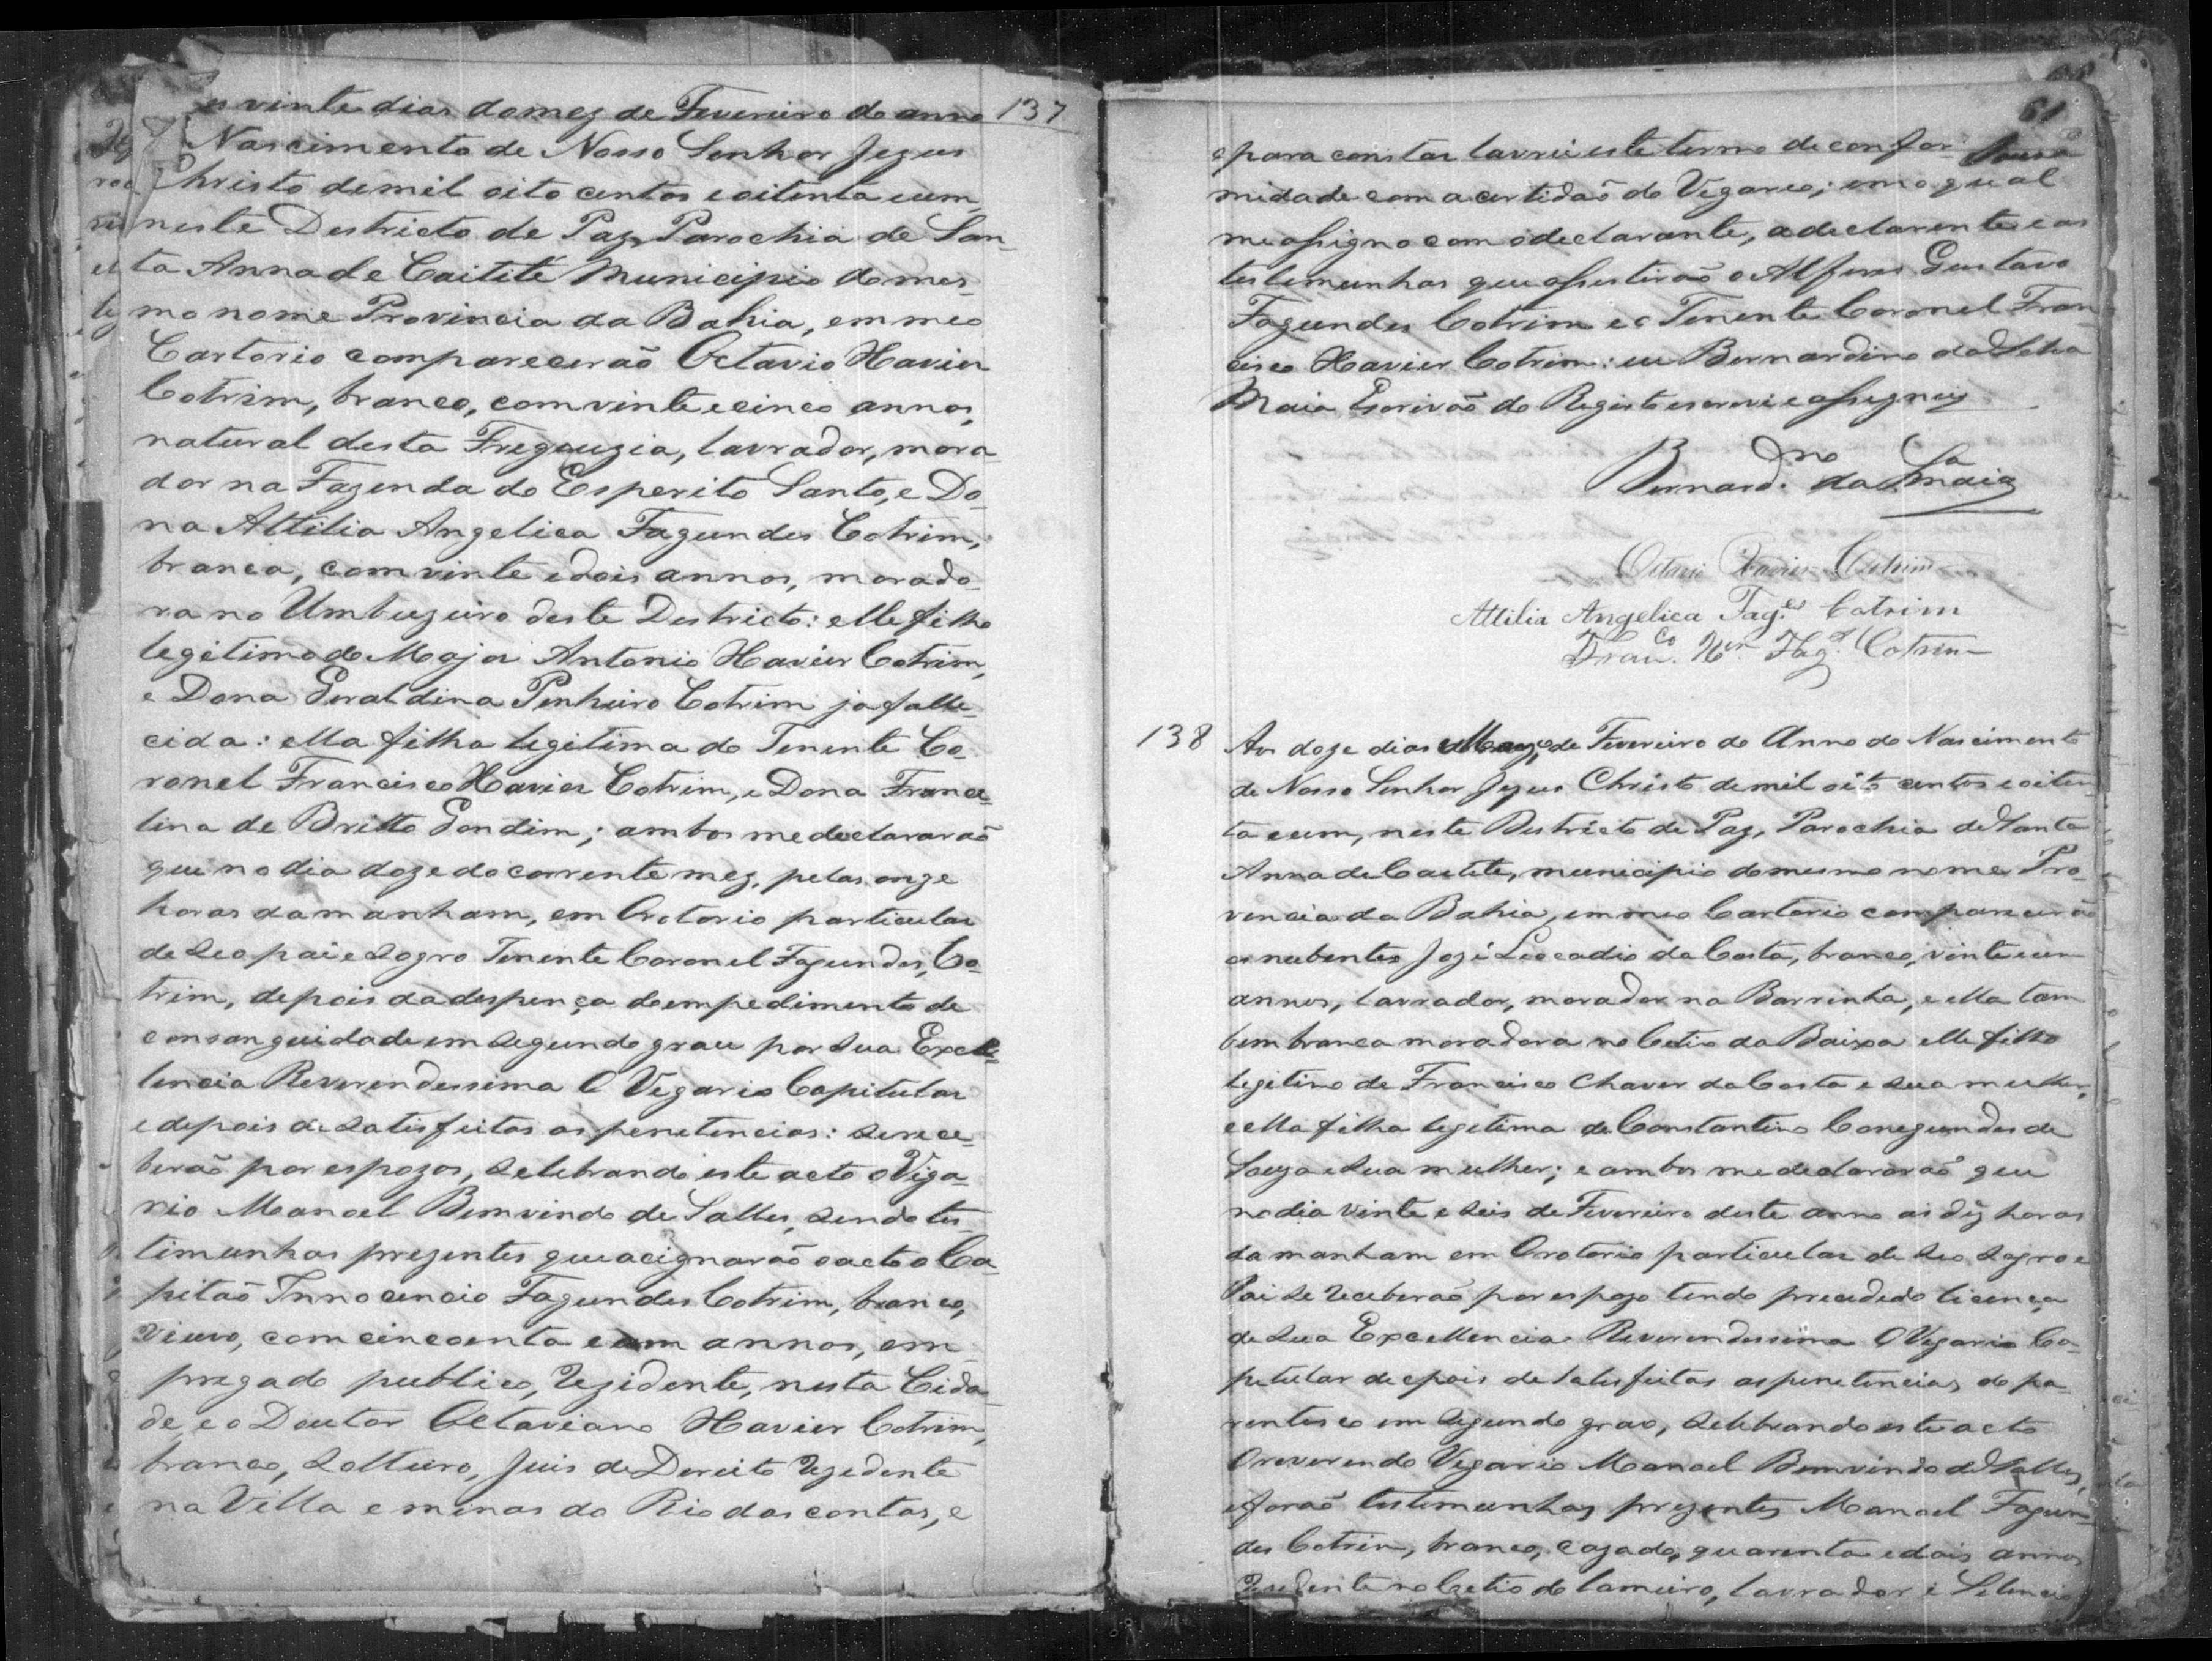 es vinte dias do mez de Fevereiro do anno 137
Nascimento de Nosso Senhor Jezus
Christo de mil oito centos e oitenta e um,
neste Destricto de Paz, Parochia de San-
ta Anna de Caitité Municipio do mes-
mo nome Provincia da Bahia, em meo
Cartorio comparecerão Octavio Xavier
Cotrim, branco, com vinte e cinco annos,
natural desta Freguezia, lavrador, mora-
dor na Fazenda do Esperito Santo, e Do-
na Attilia Angelica Fagundes Cotrim,
branca, com vinte e dois annos, morado-
ra no Umbuzeiro deste Destricto: elle filho
legitimo do Major Antonio Xavier Cotrim,
e Dona Geraldina Penheiro Cotrim ja falle-
cida: ella filha legitima do Tenente Co-
ronel Francisco Xavier Cotrim, e Dona France-
lina de Britto Gondim; ambos me declararão
que no dia doze do corrente mez, pelas onze
horas da manham, em Oratorio particular
de seo pai e sogro Tenente Coronel Fagundes, Co-
trim, depois da despença do empedimento de
consanguidade em segundo grau por sua Excel-
lencia Reverendessima O Vegario Capitular
e depois de satisfeitas as penetencias: se rece-
berão por espozos, selebrando este acto o Viga-
rio Manoel Bemvindo de Salles, sendo tes-
timunhas prezentes que acignarão o acto o Ca-
pitaõ Innocencio Fagundes Cotrim, branco,
viuvo, com cincoenta e um annos, em-
pregado publico, rezidente, nesta Cida-
de, e o Doutor Octaviano Xavier Cotrim,
branco, solteiro, Juis de Dereito rezedente
na Villa e minas do Rio das contas, e
61
e para constar lavrei este termo de confor-
midade com a certidaõ do Vegareo; em o qual
me assigno com o declarante, a declarente e as
testemunhas que assestiraõ o Alferes Gustavo
Fagundes Cotrim e o Tenente Coronel Fran-
cisco Xavier Cotrim: eu Bernardino da Silva
Maia Escrivaõ do Registo escrevi e assignei
Bernard.no da S.a Maia
Octavio Xavier Cotrim
Attilia Angelica Fag.es Cotrim
Fran.co X.er Fag.s Cotrim
138 Aos doze dias Março de Fevereiro do Anno do Nascimento
de Nosso Senhor Jezus Christo de mil oito centos e oiten-
ta e um, neste Destricto de Paz, Parochia de Santa
Anna de Caetete, municipio do mesmo nome Pro-
vencia da Bahia, em meo Cartorio comparecerão
os nubentes José Leocadio da Costa, branco, vinte e um
annos, lavrador, morador na Barrinha, e ella tam
bem branca moradora no Cetio da Baixa elle filho
legitimo de Francisco Chaves da Costa e sua mulher,
e ella filha legetima de Constantino Conegundes de
Souza e sua mulher; e ambos me declararaõ que
no dia vinte e seis de Fevereiro deste anno as déz horas
da manham em Oratorio particular de seo sogro e
Pai se receberaõ por espozo tendo precededo licença
de sua Excellencia Reverendessima O Vegario Ca-
petular depois de satesfeitas as penetencias do pa-
rentesco em segundo grao, selebrando este acto
O reverendo Vegario Manoel Bemvindo de Salles,
e foraõ testemunhas prezentes Manoel Fagun-
des Cotrim, branco, cazado, quarenta e dois annos
rezedente no Cetio do Lameiro, lavrador e Selencio